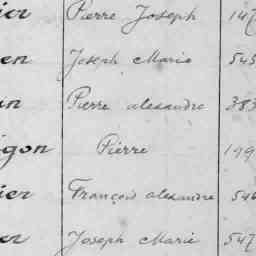 ier Pierre Joseph 147
en Joseph Marie 545
in Pierre alexandre 383
igon Pierre 199
ier François alexandre 546
er Joseph Marie 547